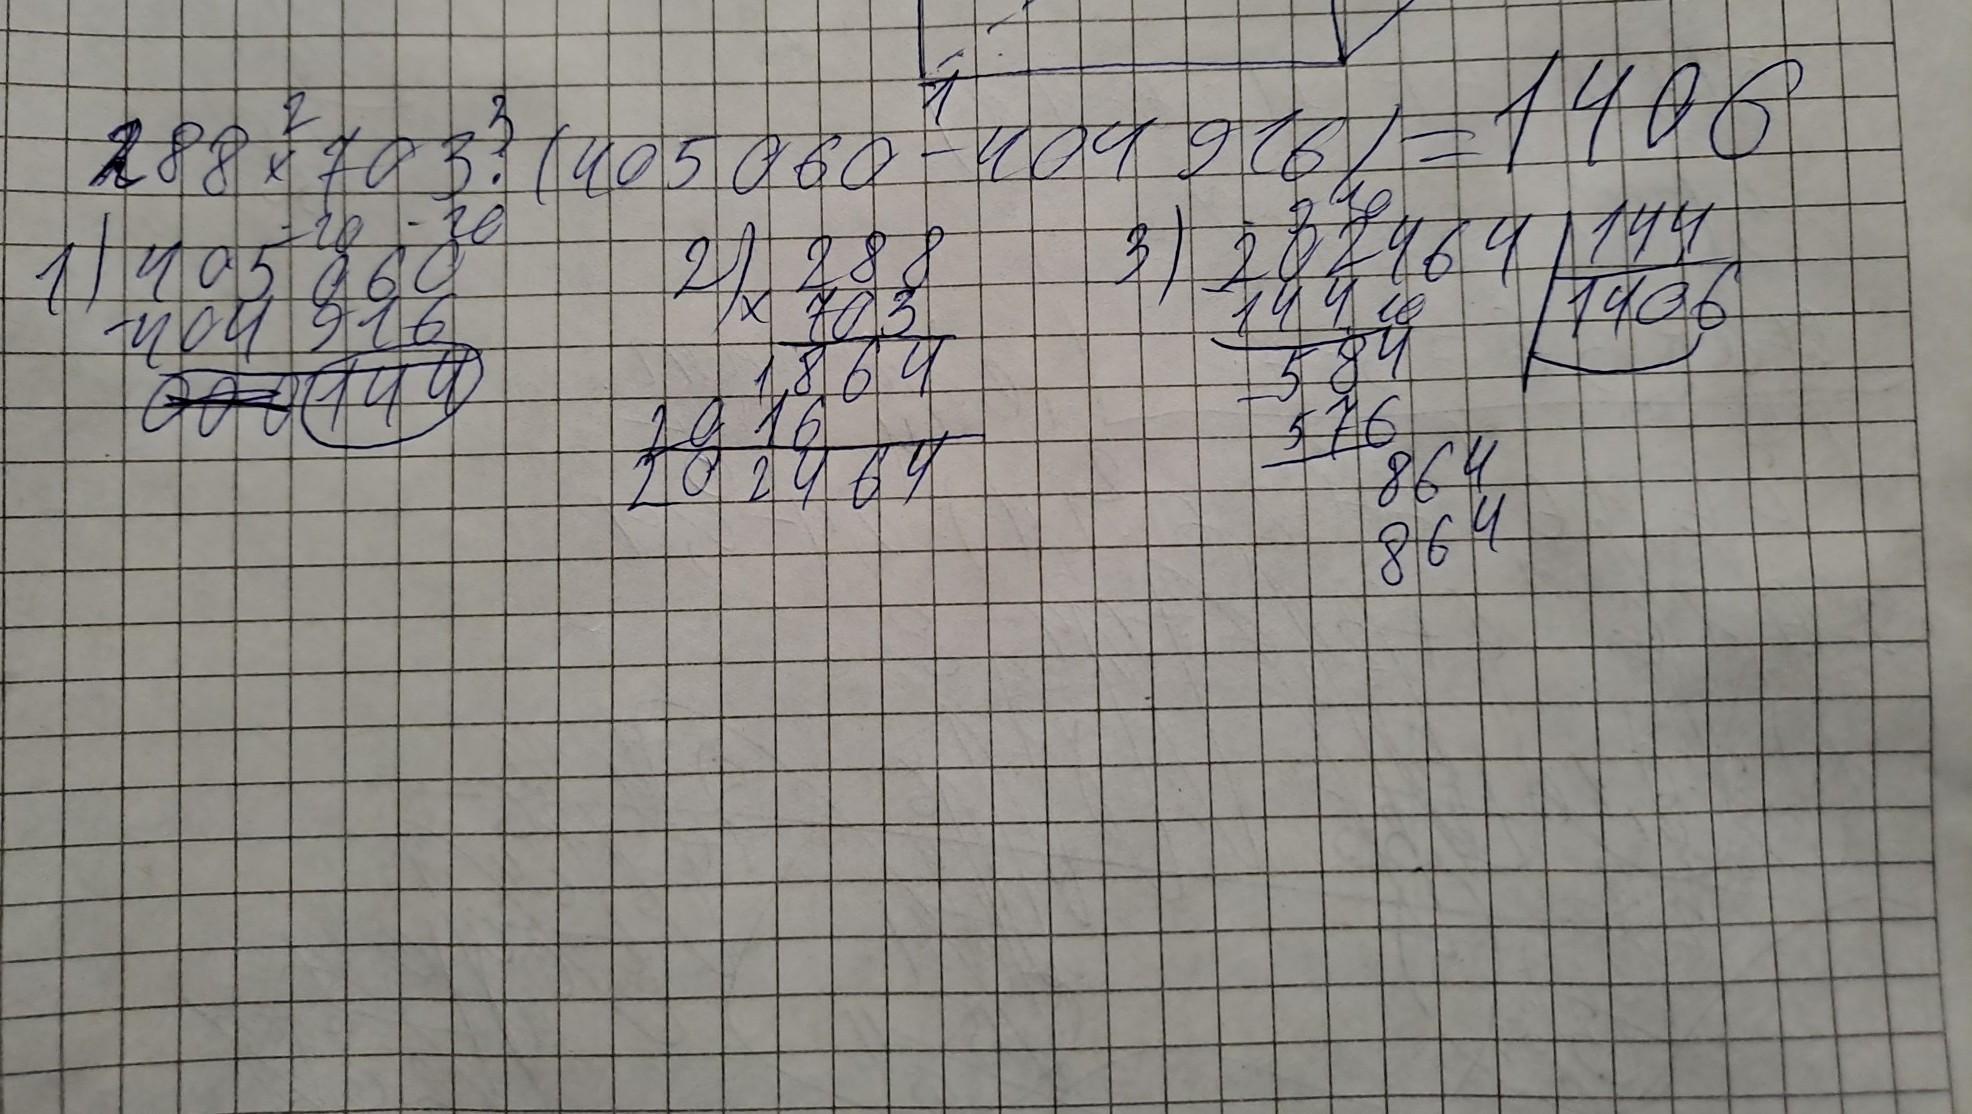 288 × 703 : (405 060 - 404 916) = 1406
2 3 1
1) 405 060
- 404 916
000 144
2) 288
× 703
1864
2016
202464
3) 202464 | 144
144 1406
584
- 576
864
864